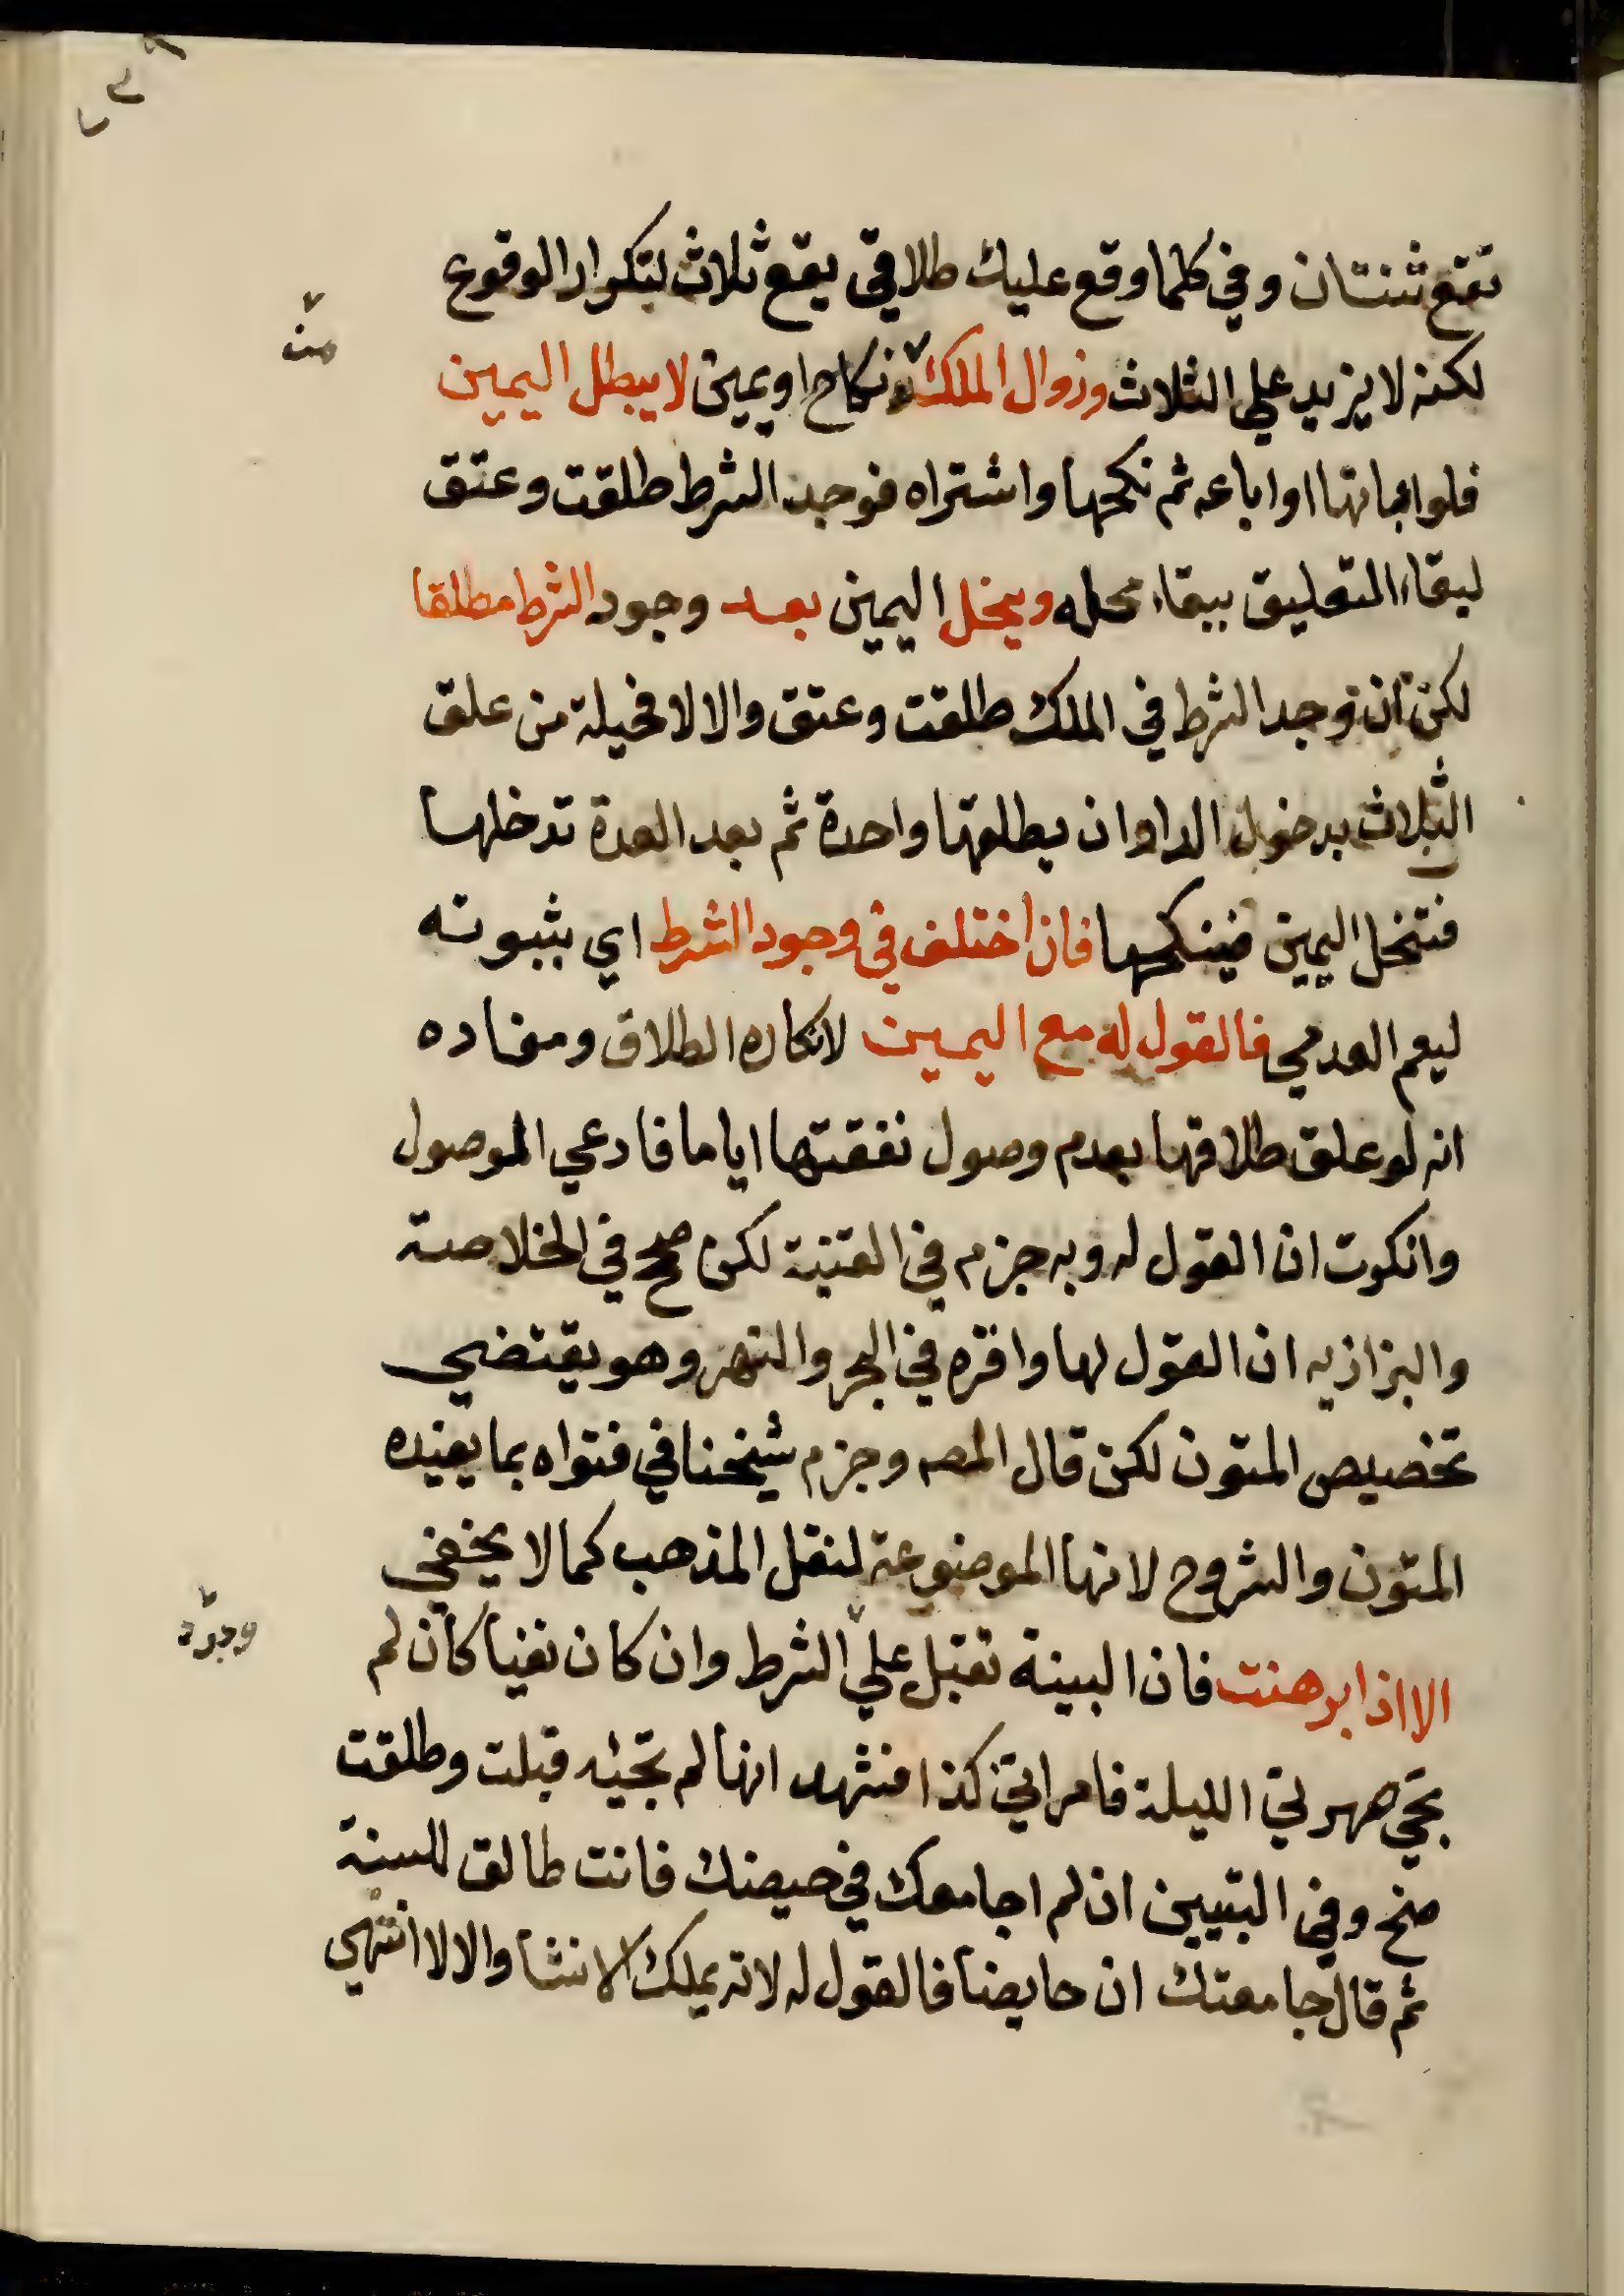 تقع ثنتان وفي كلما وقع عليك طلاقي يقع ثلاث لتكرار الوقوع
لكنه لا يزيد على الثلاث وزوال الملك نكاح او يمين لا يبطل اليمين
من
فلو ابانها او اباعه ثم نكحها واشتراه فوجد الشرط طلقت وعتق
لبقاء التعليق ببقاء محله وينحل اليمين بعد وجود الشرط مطلقا
لكن ان وجد الشرط في الملك طلقت وعتق والا لا فحيلة من علق
الثلاث بدخول الدار ان يطلقها واحدة ثم بعد العدة تدخلها
فتنحل اليمين فينكحها فان اختلف في وجود الشرط اي بثبوته
ليعم العدمي فالقول له مع اليمين لانكاره الطلاق ومفاده
انه لو علق طلاقها بعدم وصول نفقتها اياما فادعي الموصول
وانكرت ان القول له وبه جزم في القنية لكن صحح في الخلاصة
والبزازيه ان القول لها واقره في البحر والنهر وهو يقتضي
تخصيص المتون لكن قال المصه وجزم شيخنا في فتواه بما يفيده
المتون والشروح لانها الموضوعة لنقل المذهب كما لا يخفي
الا اذا برهنت فان البينة تقبل علي الشرط وان كان نفيا كأن لم
تجي صهرتي الليلة فامراتي كذا فشهد انها لم تجئه قبلت وطلقت
منح وفي التبيين ان لم اجامعك في حيضتك فانت طالق للسنة
ثم قال جامعتك ان حايضا فالقول له لانه يملك الانشا والا لا انتهي